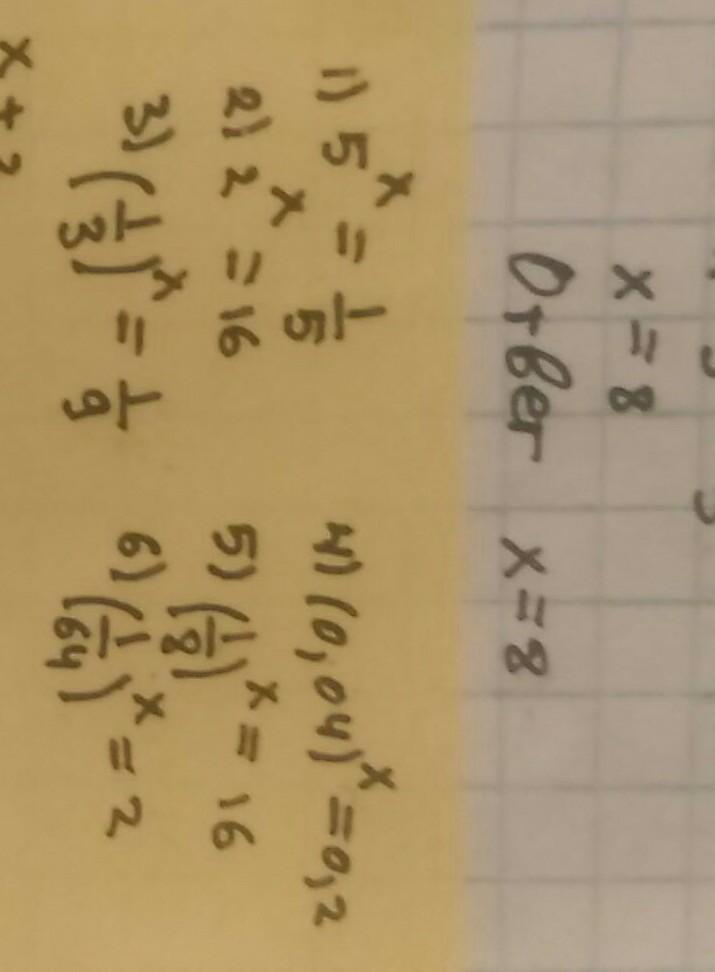 x = 8
Ответ x = 8
1) 5^x = 1/5
2) 2^x = 16
3) (1/3)^x = 1/9
4) (0,04)^x = 0,2
5) (1/8)^x = 16
6) (1/64)^x = 2